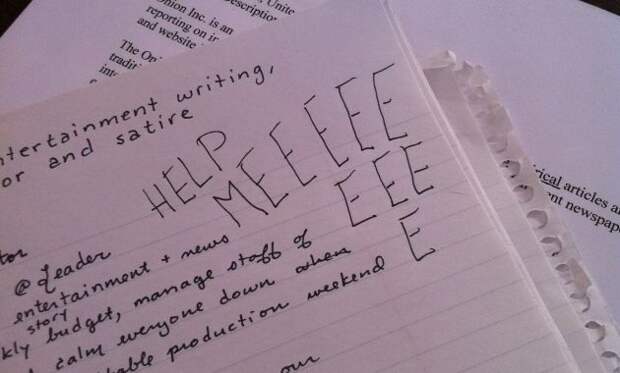 Unite
Descriptio
nion Inc. is an
reporting on
and website
The On
tradit
inte
ntertainment writing,
or and satire
HELP
MEEEEE
EEE
E
tor
@ Leader
entertainment + news
story
kly budget, manage staff of
calm everyone down when
able production weekend
our
irical articles a
ent newspape